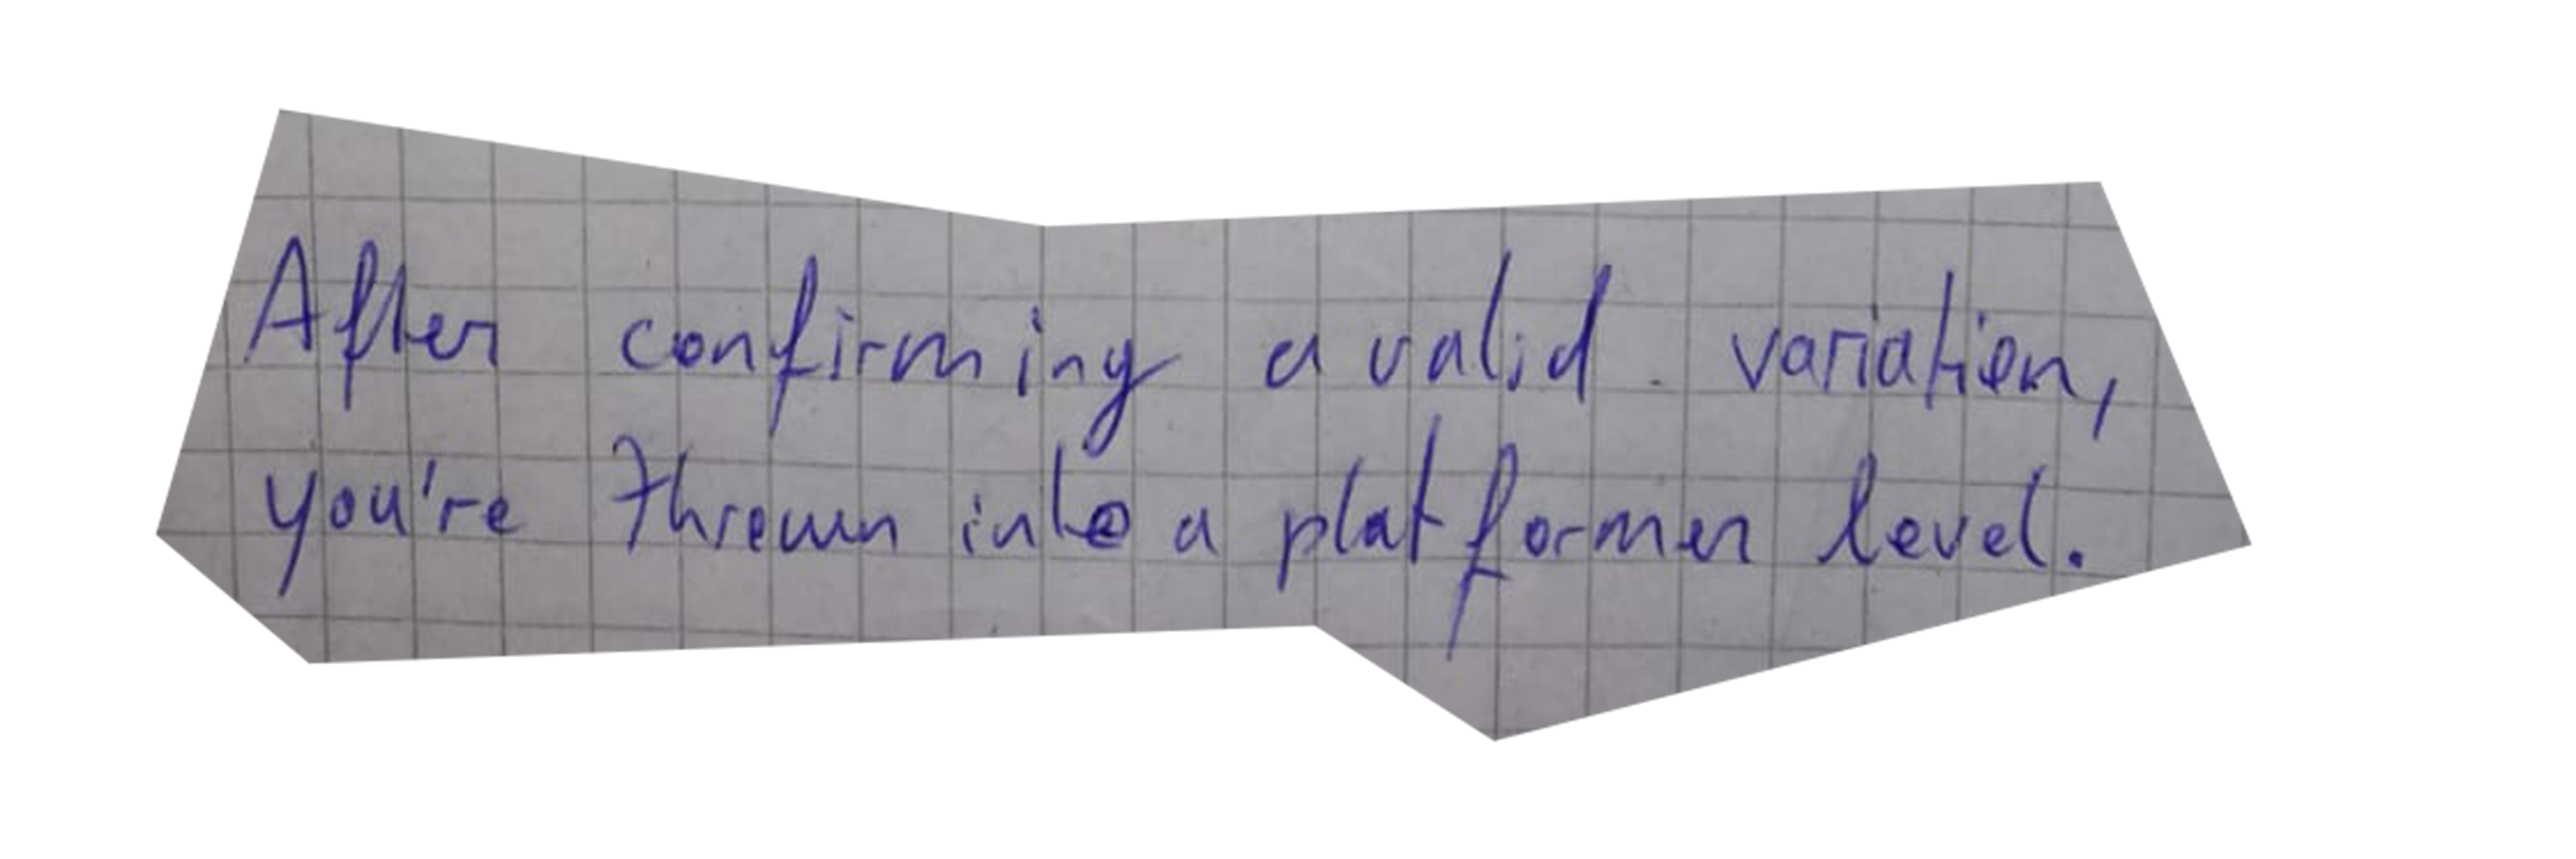 After confirming a valid variation,
you're thrown into a platformer level.